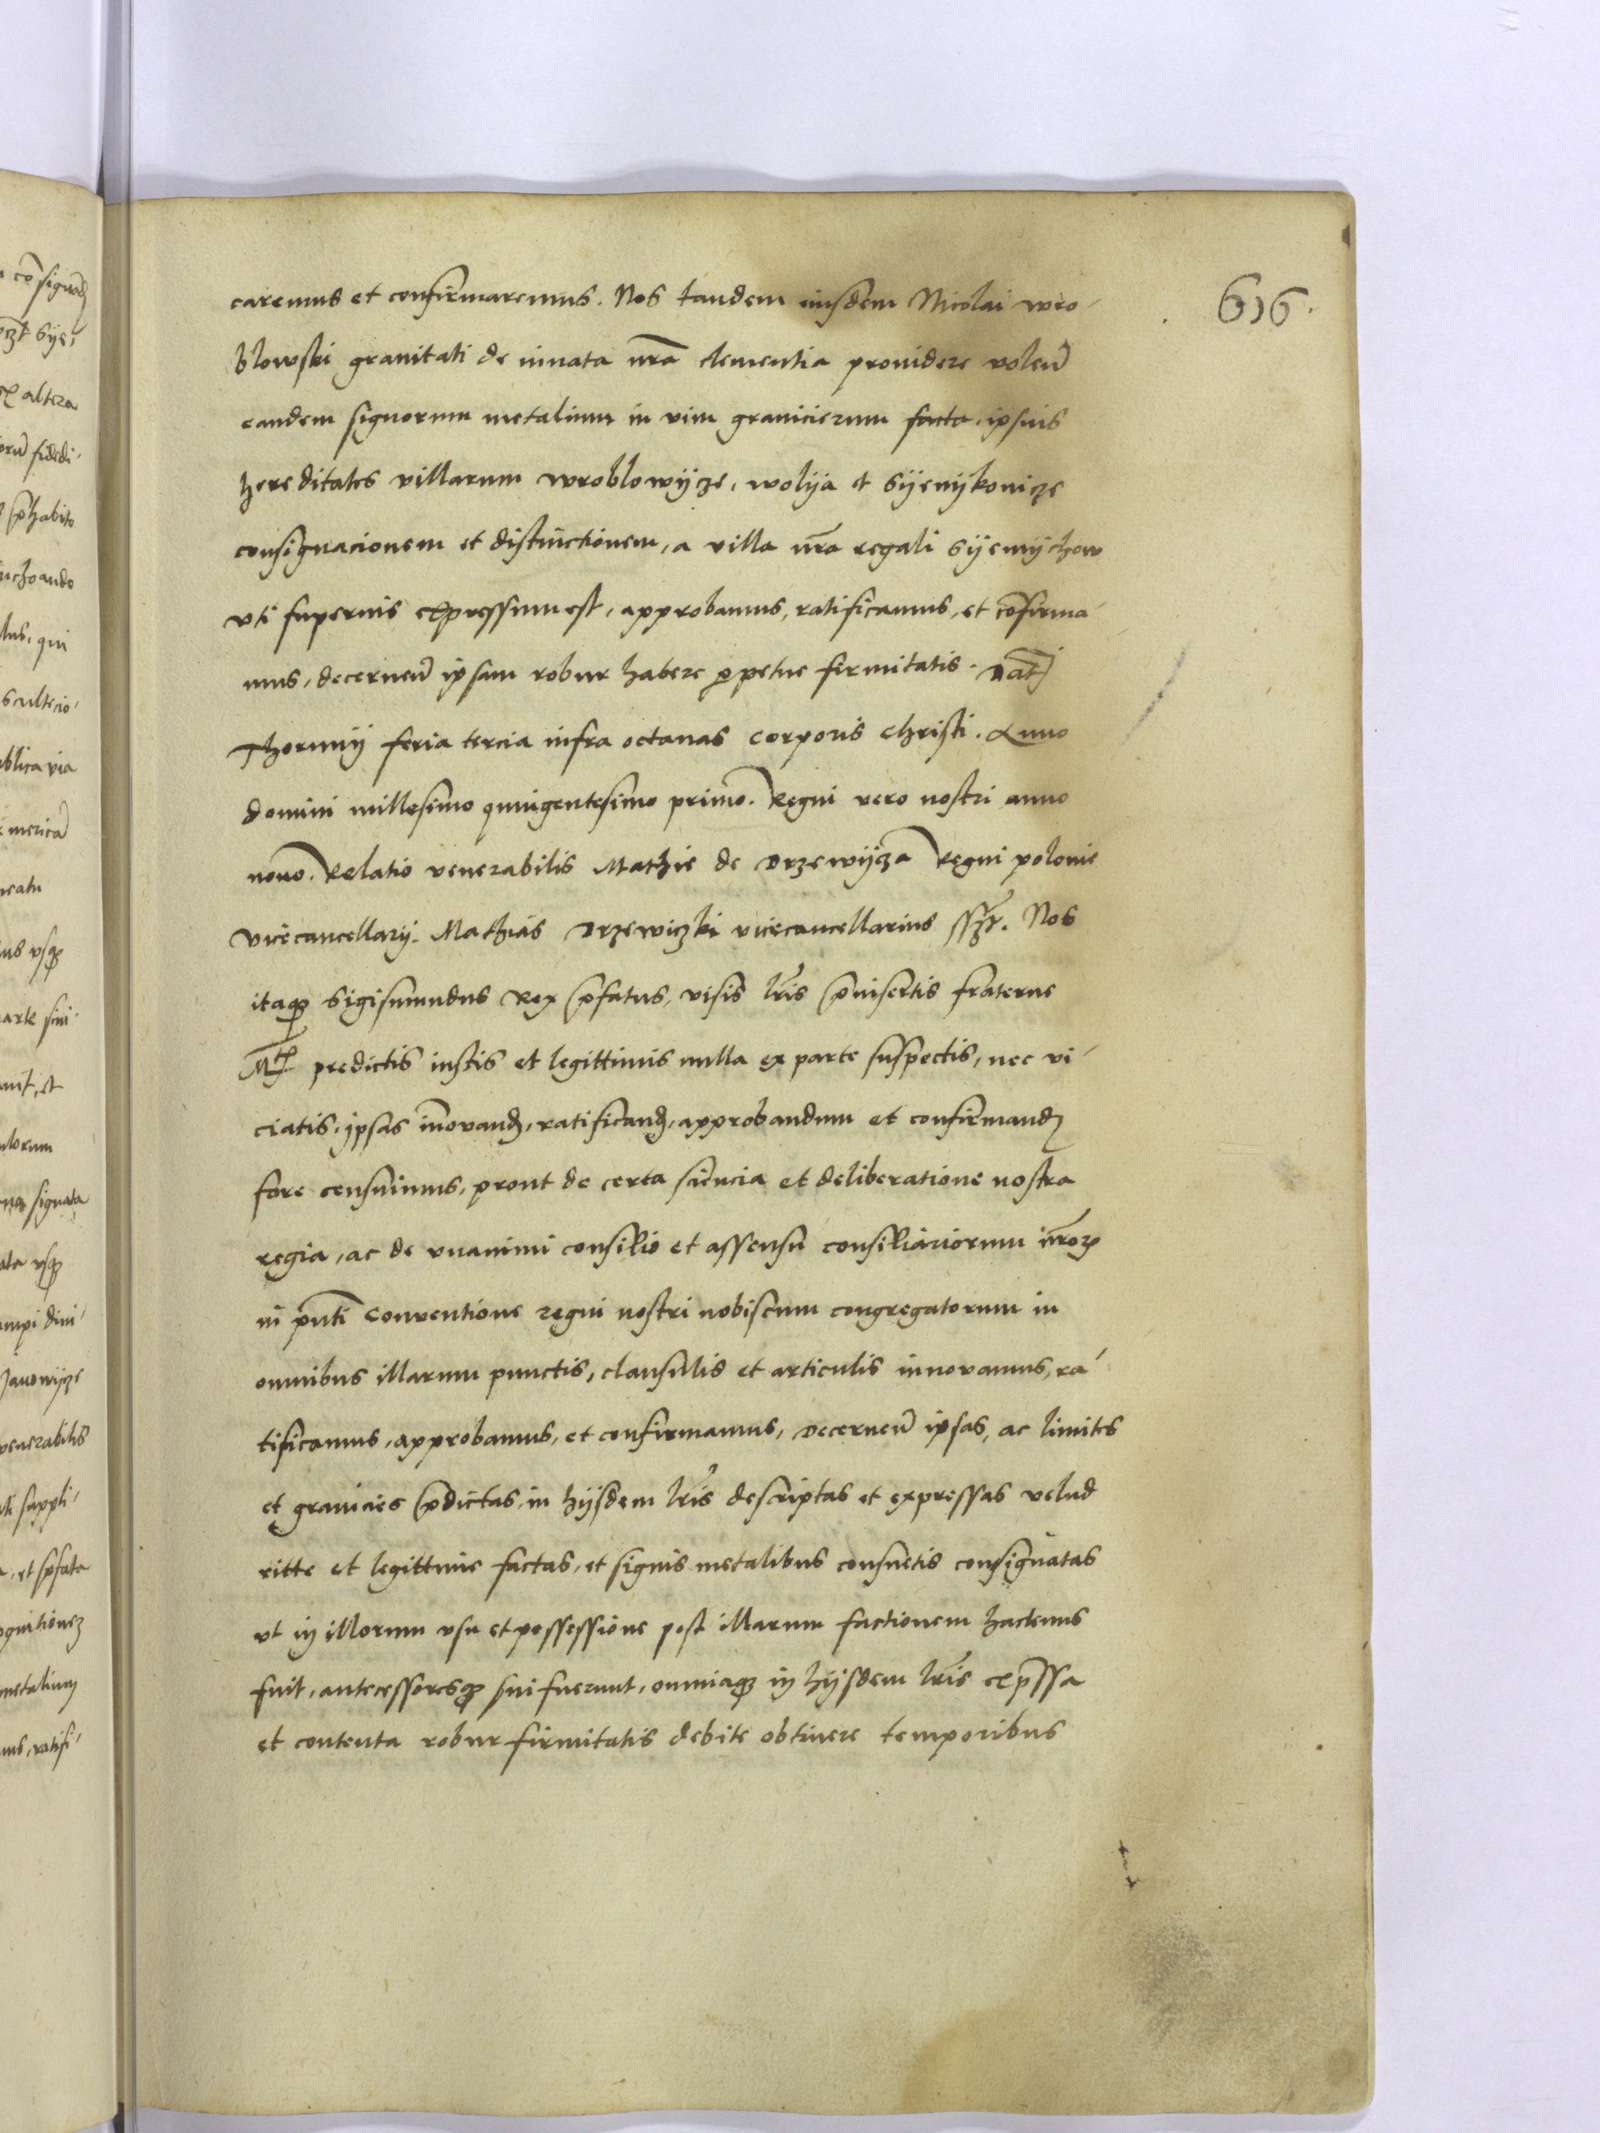 616.
caremus et confirmaremus. Nos tandem eiusdem Nicolai wro-
blowski grauitati de innata nr̃a clementia prouidere voleñ
eandem signorum metalium in vim granicierum facta, ipsius
hereditates villarum wroblowijcze, wolija et Sijemijkonicze
consignacionem et distinctionem, a villa nr̃a regali Sijemijchow
vti superius expressum est, approbamus, ratificamus, et cõfirma-
mus, decerneñ ipsam robur habere ꝑpetue firmitatis. Dat̃
Thorunij feria tercia infra octauas Corporis Christi. Anno
domini millesimo quingentesimo primo. Regni vero nostri anno
nono. Relatio venerabilis Mathie de Drzewijcza Regni polonie
vicecancellarij. Mathias Drzewiczki vicecancellarius sszt. Nos
itaqꝫ Sigismundus Rex p̃fatus, visis lr̃is p̃insertis fraterne
Mtꝭ predictis iustis et legittimis nulla ex parte suspectis, nec vi-
ciatis, ipsas iñouandꝭ, ratificandꝭ, approbandum et confirmandꝭ
fore censuimus, prout de certa sciencia et deliberatione nostra
regia, ac de vnanimi consilio et assensu consiliariorum nr̃oꝝ
in p̃nti Conventione regni nostri nobiscum congregatorum in
omnibus illarum punctis, clausulis et articulis innovamus, ra-
tificamus, approbamus, et confirmamus, Decerneñ ipsas, ac limites
et granicies p̃dictas in hijsdem lr̃is descriptas et expressas velud
ritte et legittime factas, et signis metalibus consuetis consignatas
vt in illorum vsu et possessione post illarum factionem hactenus
fuit, antecessoresqꝫ sui fuerunt, omniaqꝫ in hijsdem lr̃is exp̃ssa
et contenta robur firmitatis debite obtinere temporibus